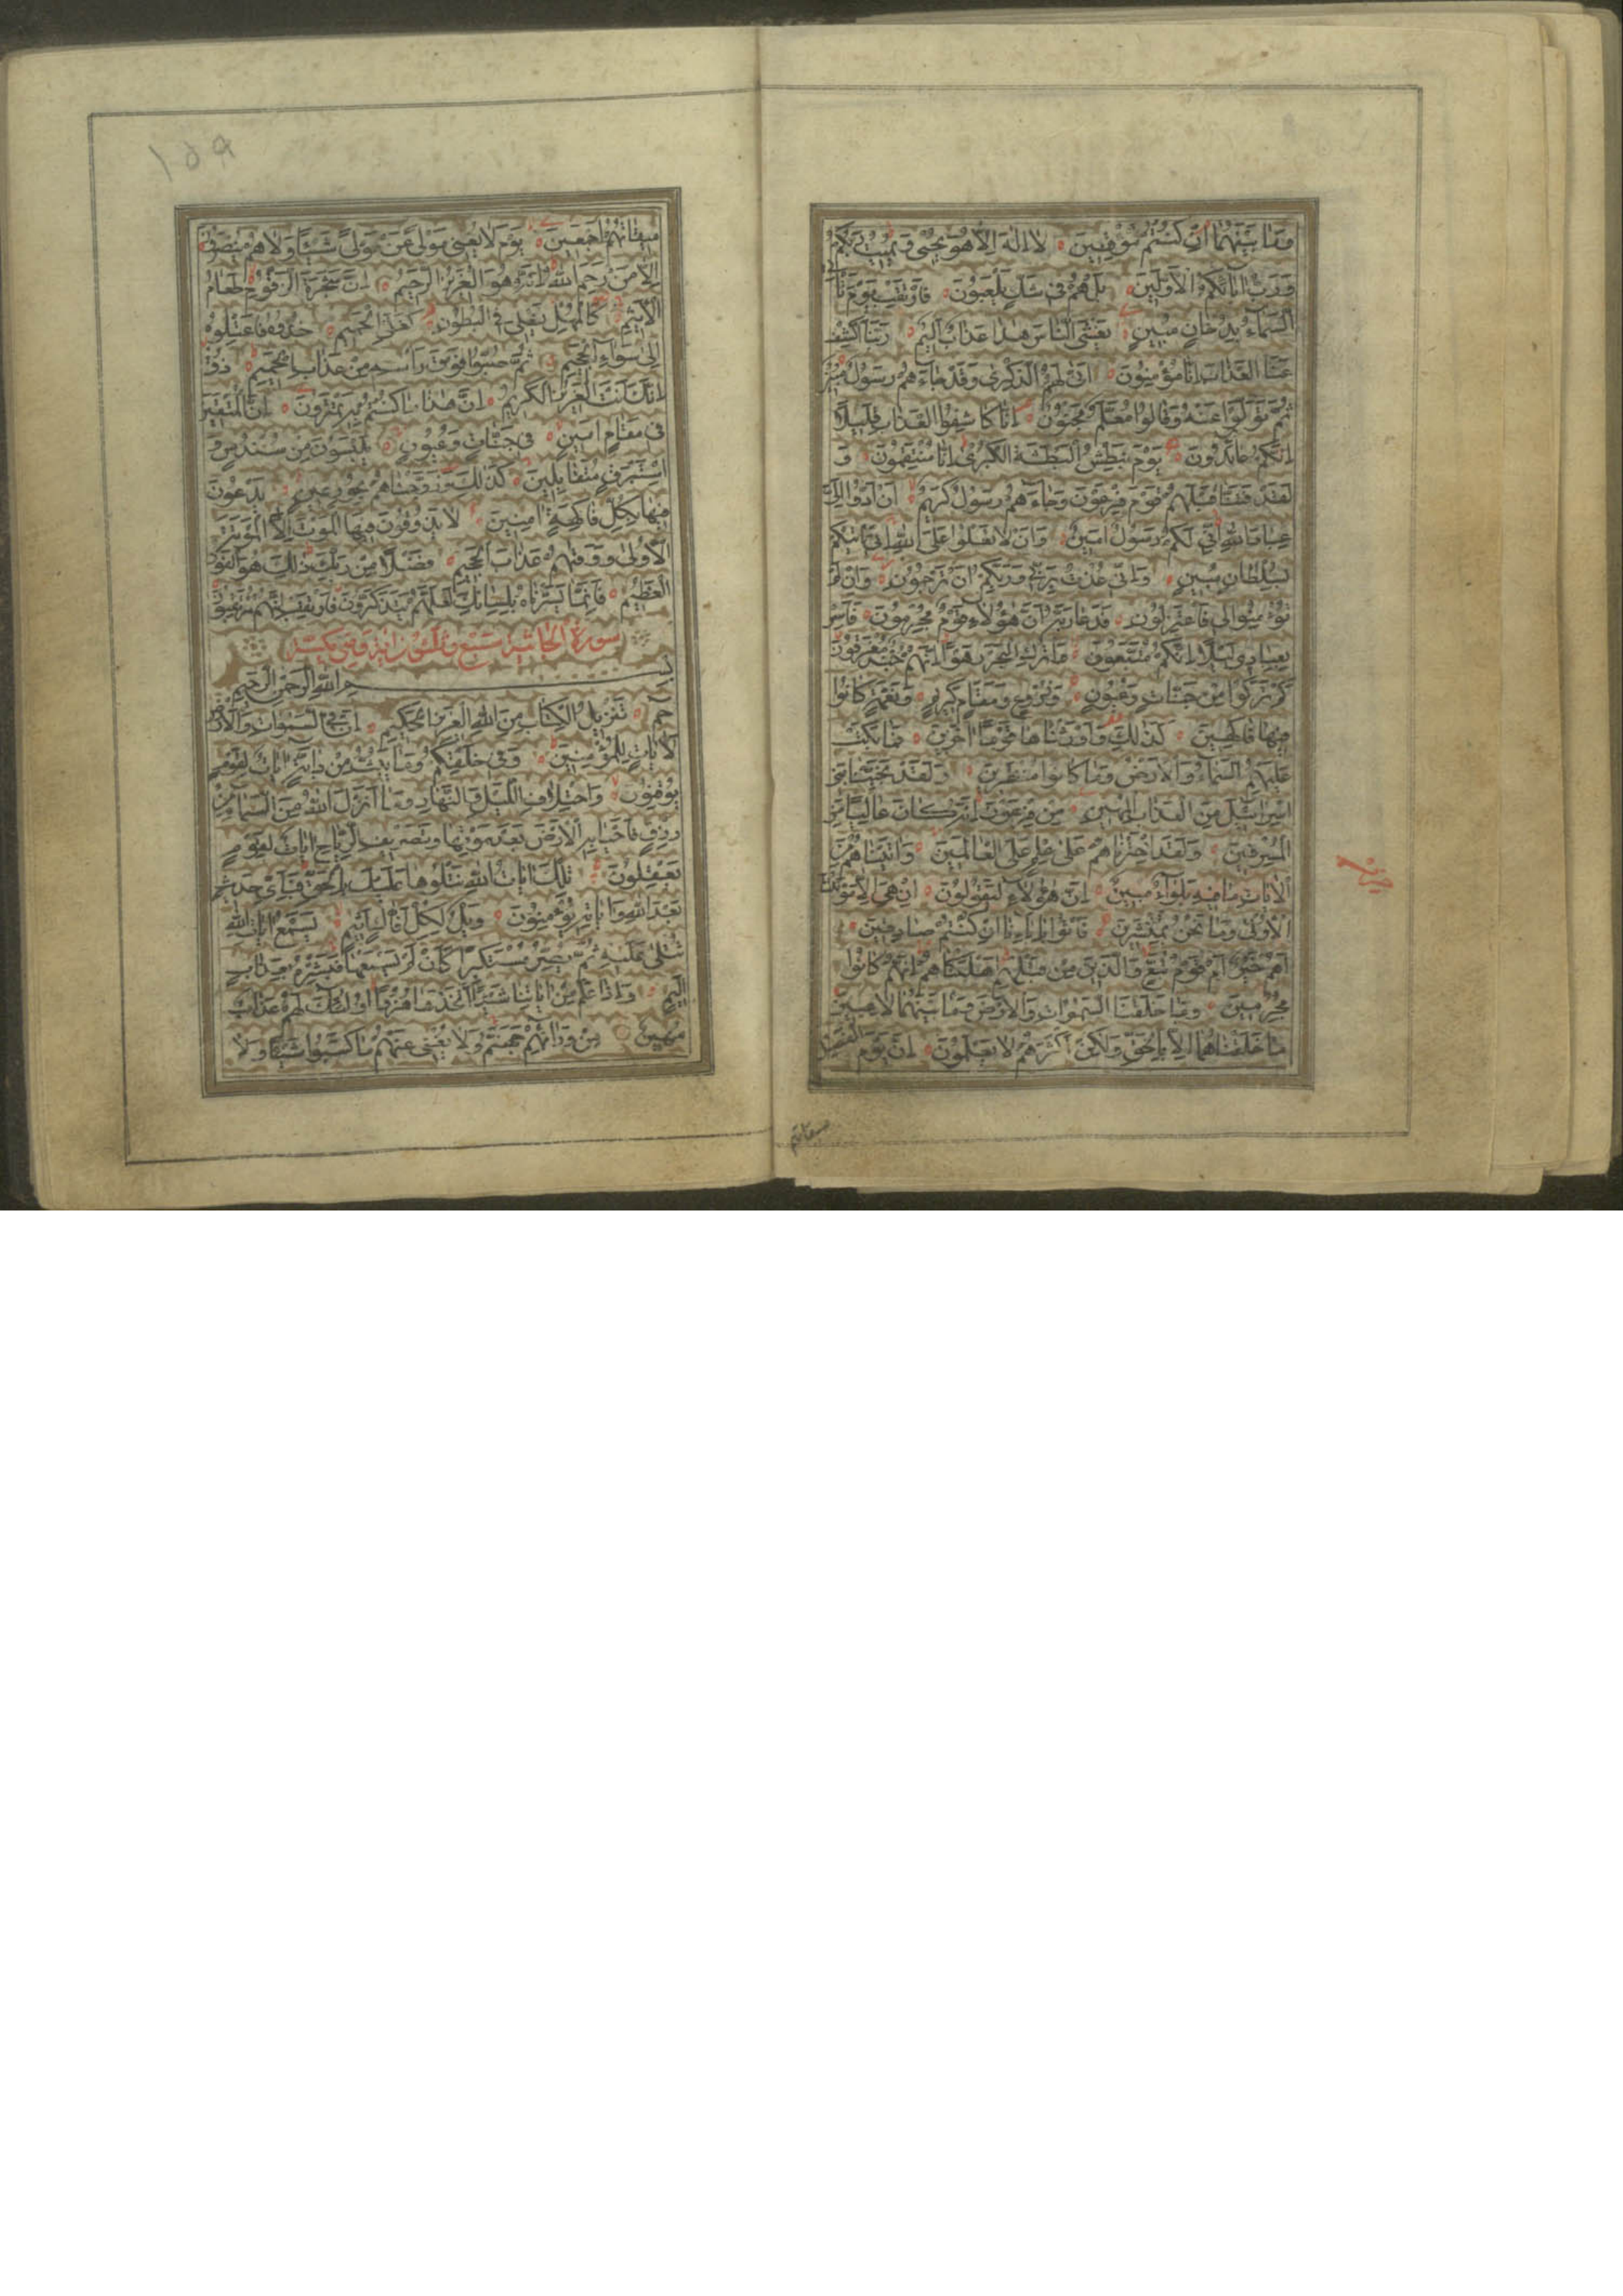 وَمَا بَيْنَهُمَا اِنْ كُنْتُمْ مُوقِنِينَ لَا اِلٰهَ اِلَّا هُوَ يُحْيِي وَيُمِيتُ رَبُّكُمْ
وَرَبُّ اٰبَائِكُمُ الْاَوَّلِينَ بَلْ هُمْ فِي شَكٍّ يَلْعَبُونَ فَارْتَقِبْ يَوْمَ تَأْتِي
السَّمَاءُ بِدُخَانٍ مُبِينٍ يَغْشَى النَّاسَ هٰذَا عَذَابٌ اَلِيمٌ رَبَّنَا اكْشِفْ
عَنَّا الْعَذَابَ اِنَّا مُؤْمِنُونَ اَنّٰى لَهُمُ الذِّكْرٰى وَقَدْ جَاءَهُمْ رَسُولٌ مُبِينٌ
ثُمَّ تَوَلَّوْا عَنْهُ وَقَالُوا مُعَلَّمٌ مَجْنُونٌ اِنَّا كَاشِفُوا الْعَذَابِ قَلِيلًا
اِنَّكُمْ عَائِدُونَ يَوْمَ نَبْطِشُ الْبَطْشَةَ الْكُبْرٰى اِنَّا مُنْتَقِمُونَ وَ
لَقَدْ فَتَنَّا قَبْلَهُمْ قَوْمَ فِرْعَوْنَ وَجَاءَهُمْ رَسُولٌ كَرِيمٌ اَنْ اَدُّوا اِلَيَّ
عِبَادَ اللهِ اِنِّي لَكُمْ رَسُولٌ اَمِينٌ وَاَنْ لَا تَعْلُوا عَلَى اللهِ اِنِّي اٰتِيكُمْ
بِسُلْطَانٍ مُبِينٍ وَاِنِّي عُذْتُ بِرَبِّي وَرَبِّكُمْ اَنْ تَرْجُمُونِ وَاِنْ لَمْ
تُؤْمِنُوا لِي فَاعْتَزِلُونِ فَدَعَا رَبَّهُ اَنَّ هٰؤُلَاءِ قَوْمٌ مُجْرِمُونَ فَاَسْرِ
بِعِبَادِي لَيْلًا اِنَّكُمْ مُتَّبَعُونَ وَاتْرُكِ الْبَحْرَ رَهْوًا اِنَّهُمْ جُنْدٌ مُغْرَقُونَ
كَمْ تَرَكُوا مِنْ جَنَّاتٍ وَعُيُونٍ وَزُرُوعٍ وَمَقَامٍ كَرِيمٍ وَنَعْمَةٍ كَانُوا
فِيهَا فَاكِهِينَ كَذٰلِكَ وَاَوْرَثْنَاهَا قَوْمًا اٰخَرِينَ فَمَا بَكَتْ
عَلَيْهِمُ السَّمَاءُ وَالْاَرْضُ وَمَا كَانُوا مُنْظَرِينَ وَلَقَدْ نَجَّيْنَا بَنِي
اِسْرَائِيلَ مِنَ الْعَذَابِ الْمُهِينِ مِنْ فِرْعَوْنَ اِنَّهُ كَانَ عَالِيًا مِنَ
الْمُسْرِفِينَ وَلَقَدِ اخْتَرْنَاهُمْ عَلٰى عِلْمٍ عَلَى الْعَالَمِينَ وَاٰتَيْنَاهُمْ مِنَ
الْاٰيَاتِ مَا فِيهِ بَلٰؤٌا مُبِينٌ اِنَّ هٰؤُلَاءِ لَيَقُولُونَ اِنْ هِيَ اِلَّا مَوْتَتُنَا
الْاُولٰى وَمَا نَحْنُ بِمُنْشَرِينَ فَأْتُوا بِاٰبَائِنَا اِنْ كُنْتُمْ صَادِقِينَ
اَهُمْ خَيْرٌ اَمْ قَوْمُ تُبَّعٍ وَالَّذِينَ مِنْ قَبْلِهِمْ اَهْلَكْنَاهُمْ اِنَّهُمْ كَانُوا
مُجْرِمِينَ وَمَا خَلَقْنَا السَّمٰوَاتِ وَالْاَرْضَ وَمَا بَيْنَهُمَا لَاعِبِينَ
مَا خَلَقْنَاهُمَا اِلَّا بِالْحَقِّ وَلٰكِنَّ اَكْثَرَهُمْ لَا يَعْلَمُونَ اِنَّ يَوْمَ الْفَصْلِ
ميقاتهم
١٥٩
مِيقَاتُهُمْ اَجْمَعِينَ يَوْمَ لَا يُغْنِي مَوْلًى عَنْ مَوْلًى شَيْئًا وَلَا هُمْ يُنْصَرُونَ
اِلَّا مَنْ رَحِمَ اللهُ اِنَّهُ هُوَ الْعَزِيزُ الرَّحِيمُ اِنَّ شَجَرَةَ الزَّقُّومِ طَعَامُ
الْاَثِيمِ كَالْمُهْلِ يَغْلِي فِي الْبُطُونِ كَغَلْيِ الْحَمِيمِ خُذُوهُ فَاعْتِلُوهُ
اِلٰى سَوَاءِ الْجَحِيمِ ثُمَّ صُبُّوا فَوْقَ رَأْسِهِ مِنْ عَذَابِ الْحَمِيمِ ذُقْ
اِنَّكَ اَنْتَ الْعَزِيزُ الْكَرِيمُ اِنَّ هٰذَا مَا كُنْتُمْ بِهِ تَمْتَرُونَ اِنَّ الْمُتَّقِينَ
فِي مَقَامٍ اَمِينٍ فِي جَنَّاتٍ وَعُيُونٍ يَلْبَسُونَ مِنْ سُنْدُسٍ وَ
اِسْتَبْرَقٍ مُتَقَابِلِينَ كَذٰلِكَ وَزَوَّجْنَاهُمْ بِحُورٍ عِينٍ يَدْعُونَ
فِيهَا بِكُلِّ فَاكِهَةٍ اٰمِنِينَ لَا يَذُوقُونَ فِيهَا الْمَوْتَ اِلَّا الْمَوْتَةَ
الْاُولٰى وَوَقٰيهُمْ عَذَابَ الْجَحِيمِ فَضْلًا مِنْ رَبِّكَ ذٰلِكَ هُوَ الْفَوْزُ
الْعَظِيمُ فَاِنَّمَا يَسَّرْنَاهُ بِلِسَانِكَ لَعَلَّهُمْ يَتَذَكَّرُونَ فَارْتَقِبْ اِنَّهُمْ مُرْتَقِبُونَ
سورة الجاثية سبع وثلثون اية وهي مكية
بِسْمِ اللهِ الرَّحْمٰنِ الرَّحِيمِ
حم تَنْزِيلُ الْكِتَابِ مِنَ اللهِ الْعَزِيزِ الْحَكِيمِ اِنَّ فِي السَّمٰوَاتِ وَالْاَرْضِ
لَاٰيَاتٍ لِلْمُؤْمِنِينَ وَفِي خَلْقِكُمْ وَمَا يَبُثُّ مِنْ دَابَّةٍ اٰيَاتٌ لِقَوْمٍ
يُوقِنُونَ وَاخْتِلَافِ اللَّيْلِ وَالنَّهَارِ وَمَا اَنْزَلَ اللهُ مِنَ السَّمَاءِ مِنْ
رِزْقٍ فَاَحْيَا بِهِ الْاَرْضَ بَعْدَ مَوْتِهَا وَتَصْرِيفِ الرِّيَاحِ اٰيَاتٌ لِقَوْمٍ
يَعْقِلُونَ تِلْكَ اٰيَاتُ اللهِ نَتْلُوهَا عَلَيْكَ بِالْحَقِّ فَبِاَيِّ حَدِيثٍ
بَعْدَ اللهِ وَاٰيَاتِهِ يُؤْمِنُونَ وَيْلٌ لِكُلِّ اَفَّاكٍ اَثِيمٍ يَسْمَعُ اٰيَاتِ اللهِ
تُتْلٰى عَلَيْهِ ثُمَّ يُصِرُّ مُسْتَكْبِرًا كَاَنْ لَمْ يَسْمَعْهَا فَبَشِّرْهُ بِعَذَابٍ
اَلِيمٍ وَاِذَا عَلِمَ مِنْ اٰيَاتِنَا شَيْئًا اتَّخَذَهَا هُزُوًا اُولٰئِكَ لَهُمْ عَذَابٌ
مُهِينٌ مِنْ وَرَائِهِمْ جَهَنَّمُ وَلَا يُغْنِي عَنْهُمْ مَا كَسَبُوا شَيْئًا وَلَا